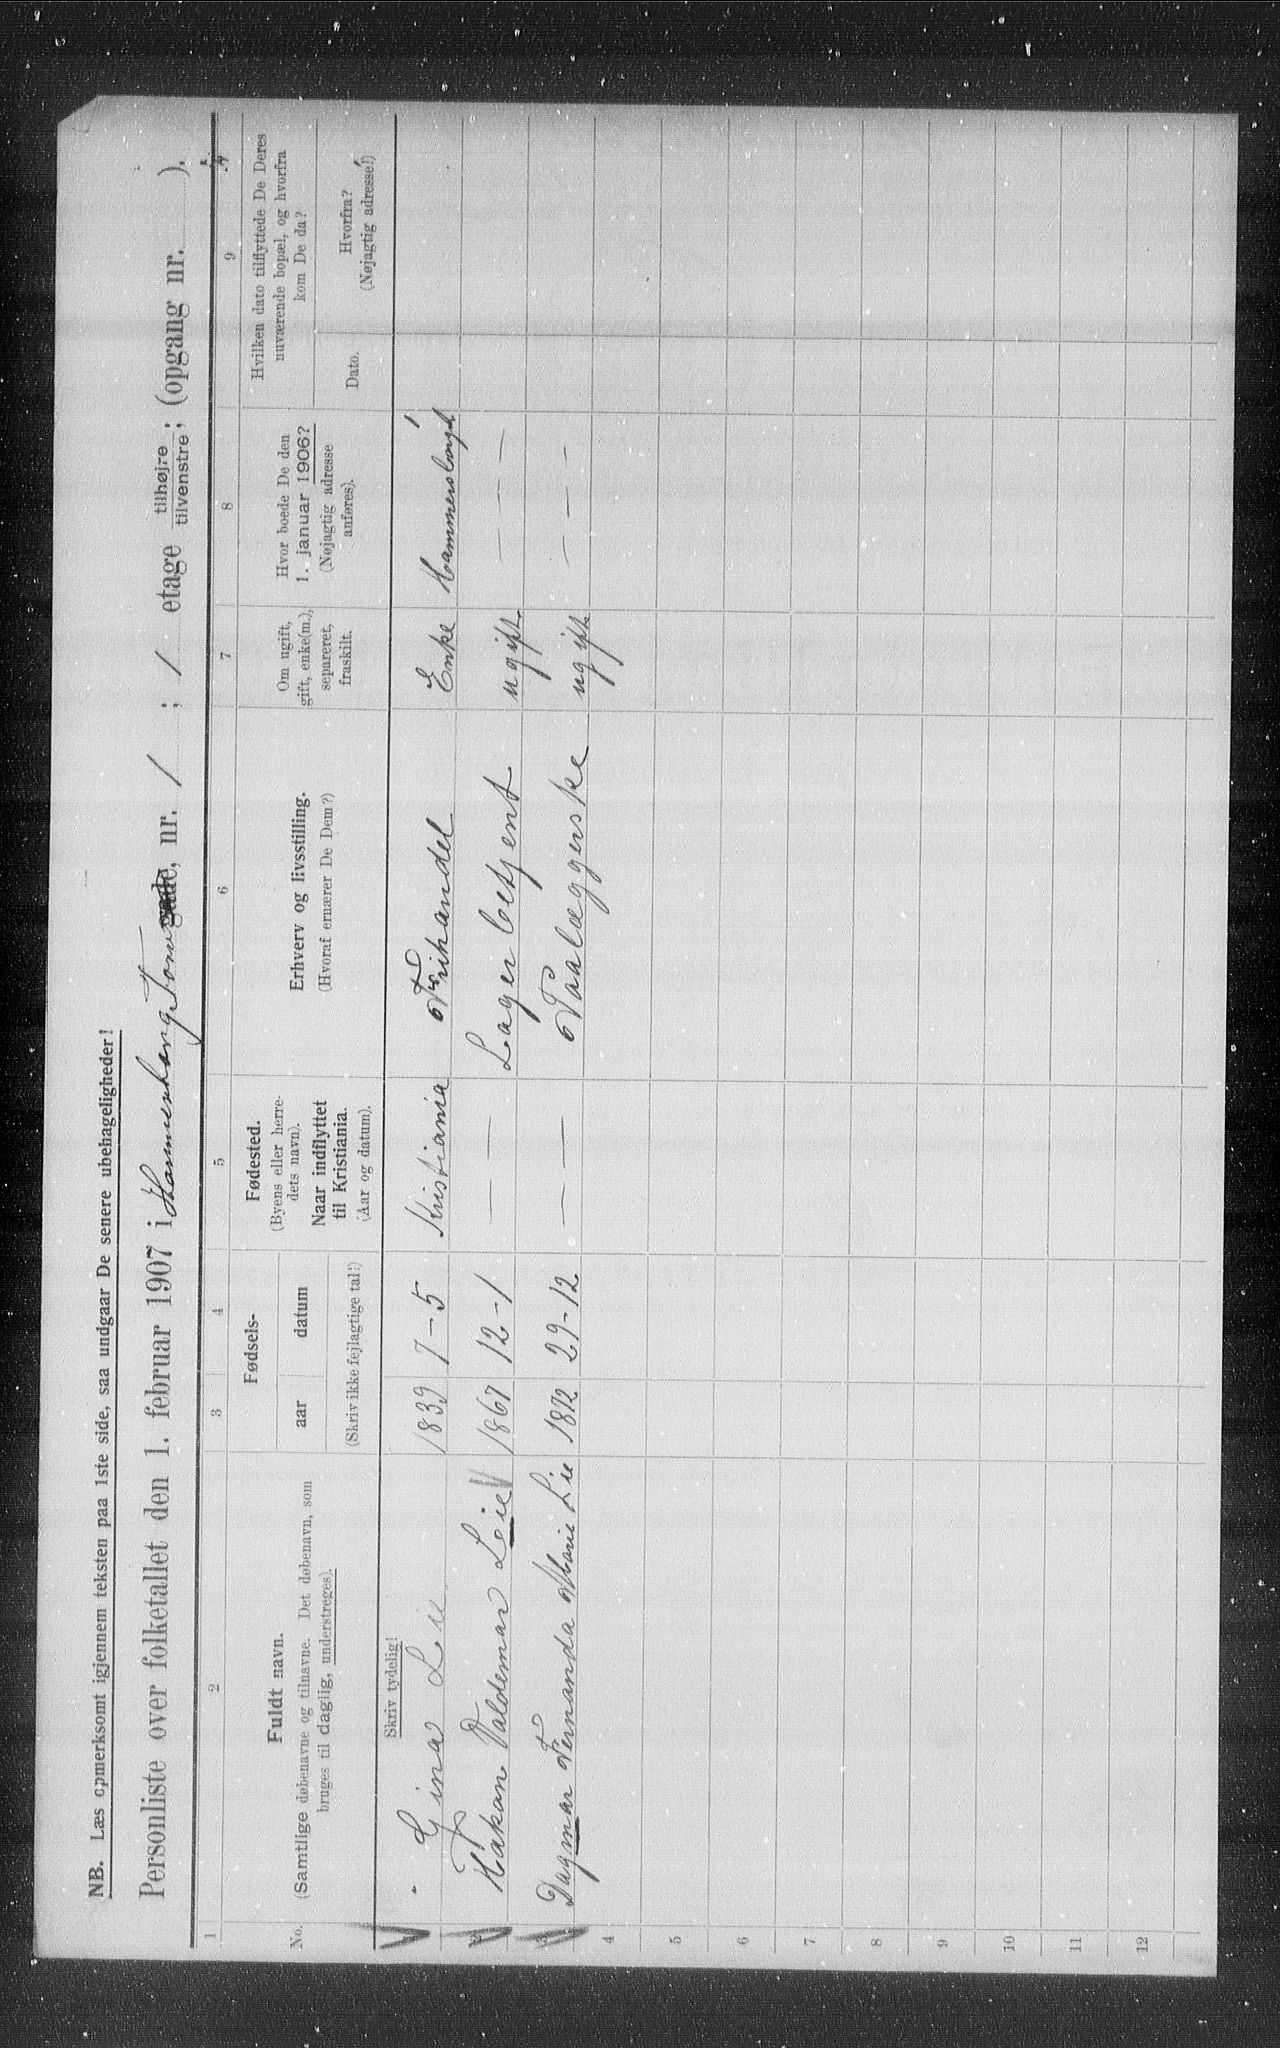 NB. Læs opmerksomt igjennem teksten paa 1ste side, saa undgaar De senere ubehageligheder!
Personliste over folketallet den 1. februar 1907 i Hammersborg Torv gade, nr. 1 ; 1 etage tilhøjre tilvenstre; (opgang nr. ).
1 2 3 4 5 6 7 8 9
No.
Fuldt navn.
(Samtlige døbenavne og tilnavne. Det døbenavn, som
bruges til daglig, understreges).
Fødsels-
aar datum
(Skriv ikke fejlagtige tal!)
Fødested.
(Byens eller herre-
dets navn).
Naar indflyttet
til Kristiania.
(Aar og datum).
Erhverv og livsstilling.
(Hvoraf ernærer De Dem?)
Om ugift,
gift, enke(m.),
separeret,
fraskilt.
Hvor boede De den
1. januar 1906?
(Nøjagtig adresse
anføres).
Hvilken dato tilflyttede De Deres
nuværende bopæl, og hvorfra
kom De da?
Dato.
Hvorfra?
(Nøjagtig adresse!)
Skriv tydelig!
Gina Lie 1839 7-5 Kristiania Frihandel Enke Hammersborgt 1
2 Hakan Valdemar Lie 1867 12-1 — — Lagerbetjent ugift — — —
3 Dagmar Fernanda Marie Lie 1872 29-12 — — Paalæggerske ugift — — —
4
5
6
7
8
9
10
11
12